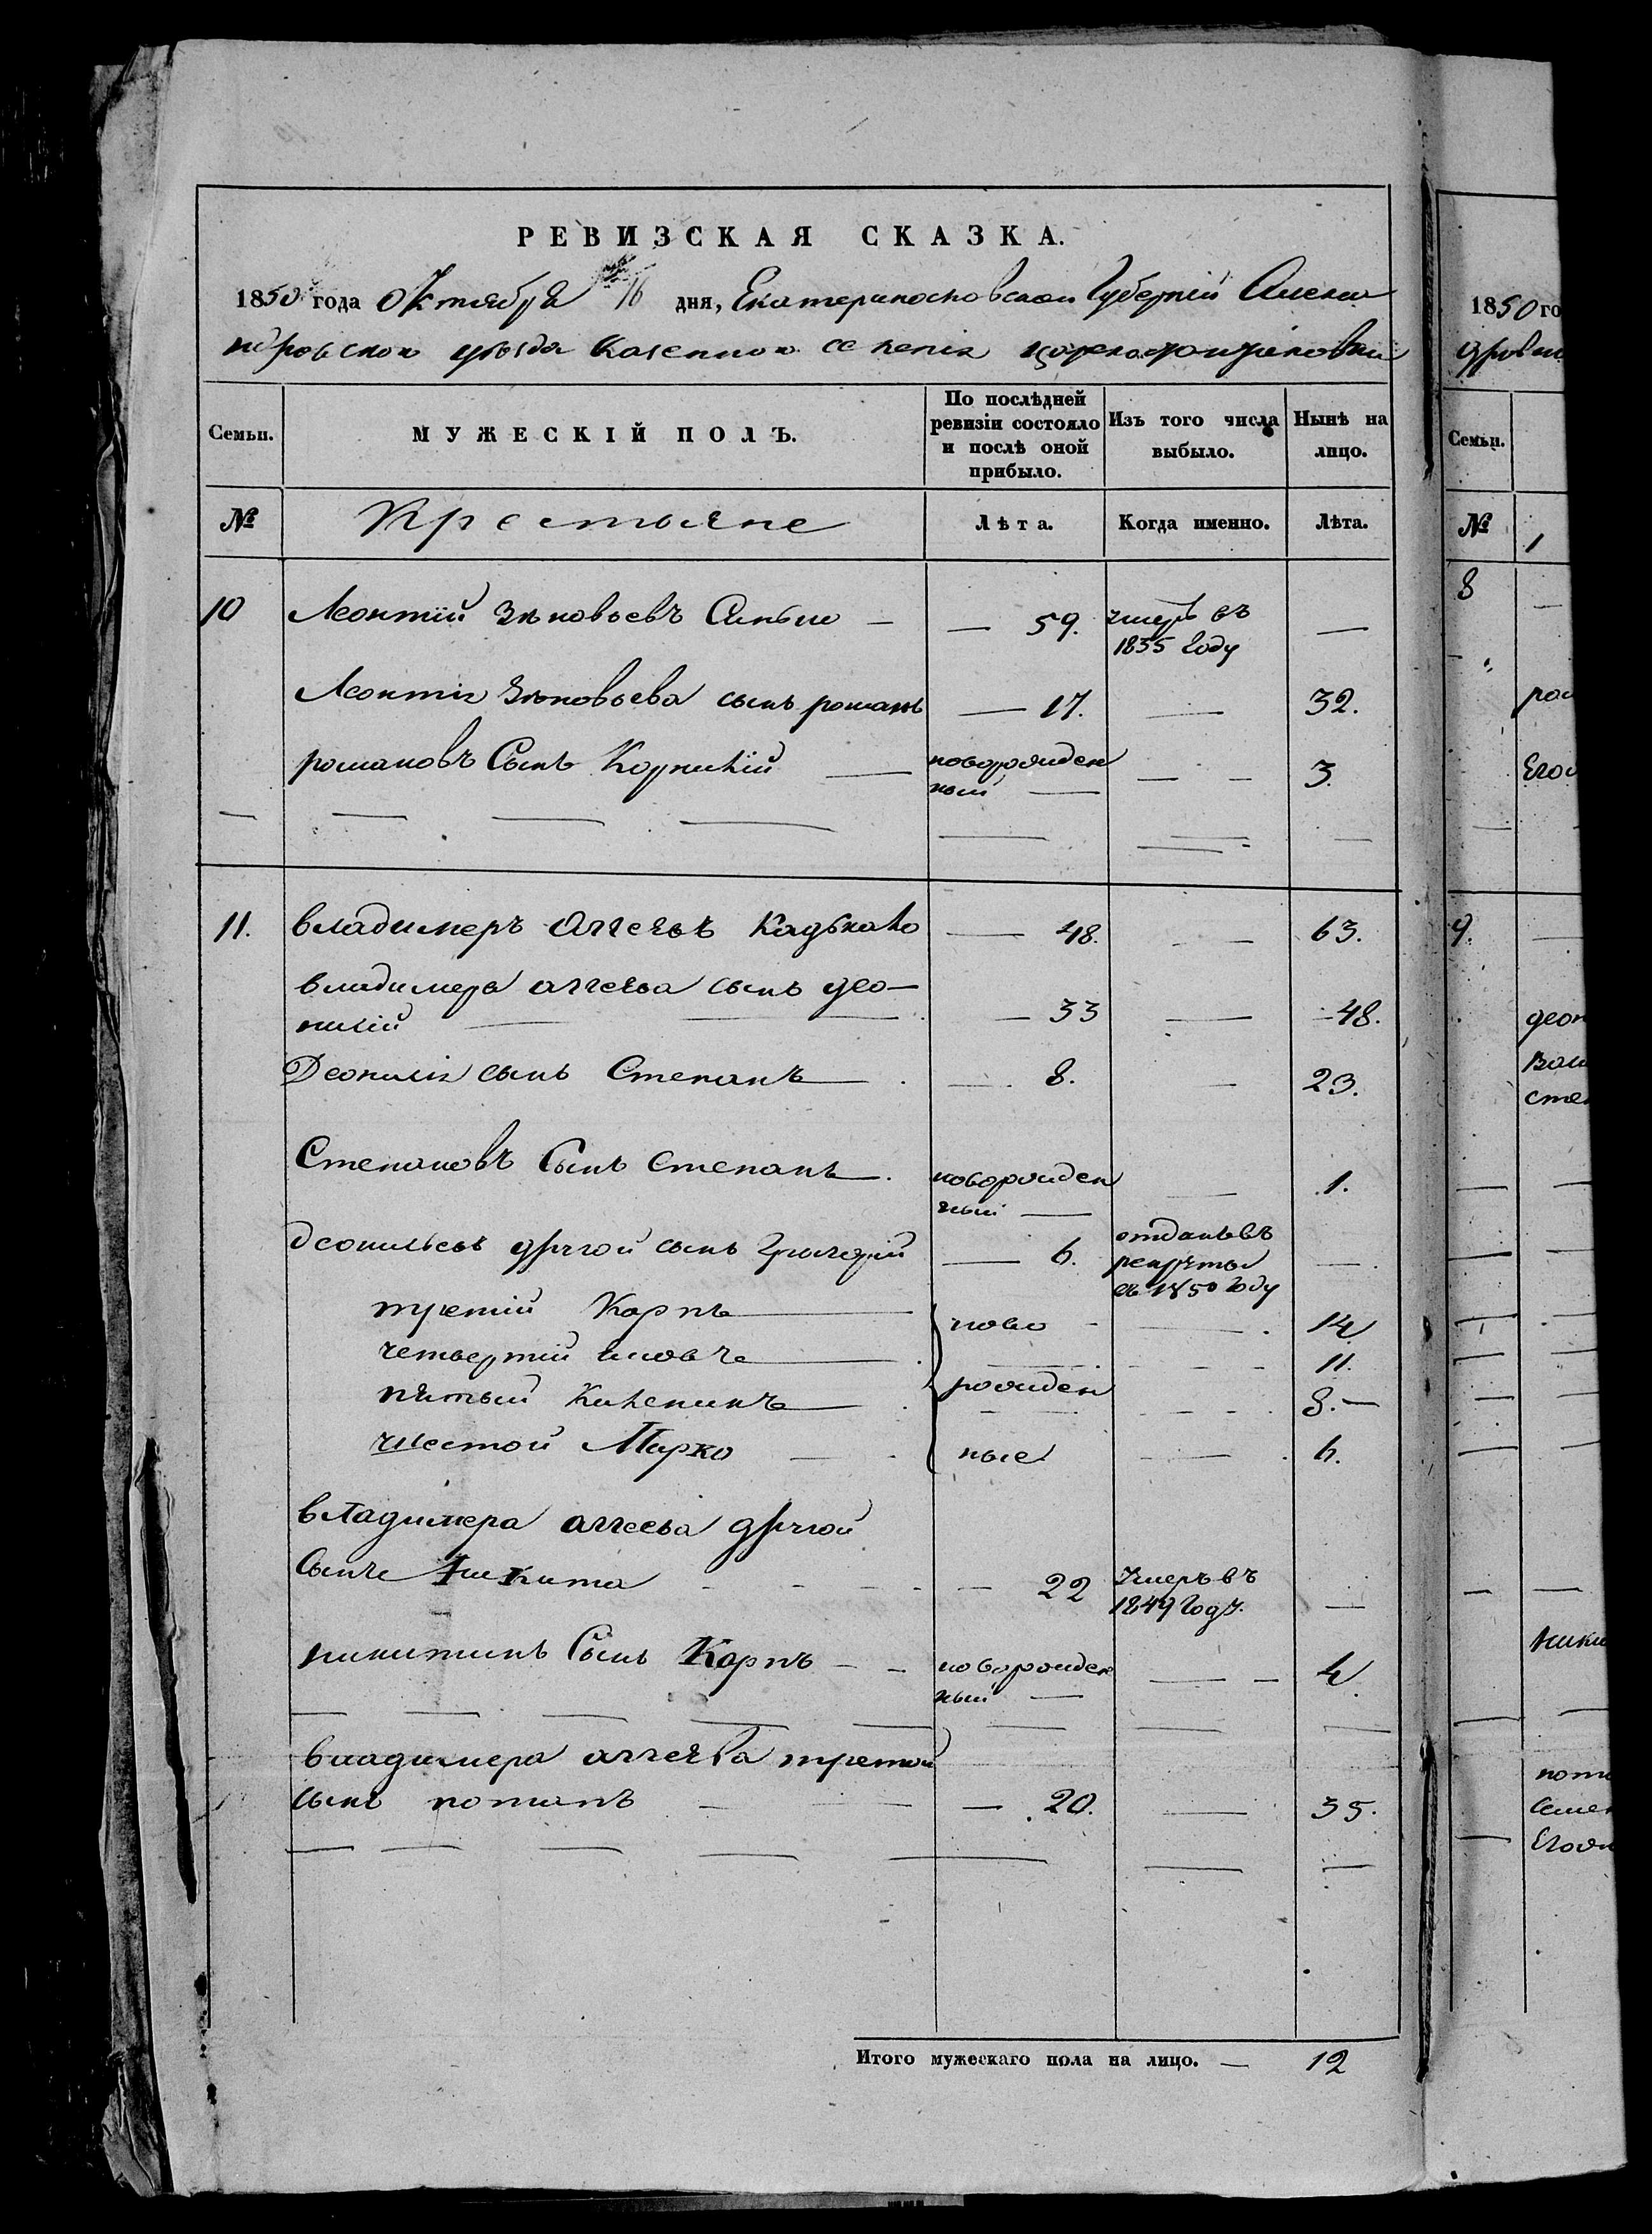 РЕВИЗСКАЯ СКАЗКА.
1850 года Октября 16 дня, Екатеринославской Губерніи Алексан
дровскаго уѣзда Казеннаго селенія
Семьи. МУЖЕСКІЙ ПОЛЪ. По послѣдней ревизіи состояло и послѣ оной прибыло. Изъ того числа выбыло. Нынѣ на лицо.
№ Крестьяне Лѣта. Когда именно. Лѣта.
10 Леонтій Зѣновьевъ — — 59. умеръ въ 1835 Году —
Леонтія Зѣновьева сынъ романъ — 17. — 32.
романовъ Сынъ Корнилій — новорожден ный — — - 3.
11. владимеръ Аггеевъ — 48. - — 63.
владимера аггеева сынъ део—
нисій — — — 33 — 48.
Деонисія сынъ Степанъ — — 8. — 23.
Степановъ Сынъ Степанъ — новорожден ный — — 1.
деонисьевъ другой сынъ Григорій — 6. отданъ въ рекруты въ 1850 Году —
третій Карпъ — ново - — 14
четвертій — — 11.
пятый — рожден - 8. —
шестой Марко — ные — 6.
владимера аггеева другой
Сынъ Никита - - - - — 22 Умеръ въ 1849 Году. —
никитинъ Сынъ Карпъ - - новорожден ный — — - 4.
владимера аггеева третой
сынъ потапъ — — — 20. — 35.
Итого мужескаго пола на лицо. — 12
1850 го
Семьи.
№ 1
8
9.